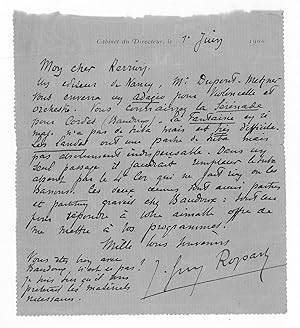 Cabinet du Directeur, le 1er Juin 1900
Mon cher
Un éditeur de Nancy, Mr Dupont-Metzner
vous enverra un adagio pour violoncelle et
orchestre. Vous connaissez la Sérénade
pour Cordes (Baudoux). La Fantaisie en ré
maj. n'a pas de mais est très difficile.
Les ont une partie de mais
pas absolument indispensable. Dans un
seul passage il faudrait remplacer le
absente par le 4e Cor qui ne fait rien ou les
Bassons. Les deux œuvres sont aussi parties
et partition gravées chez Baudoux :
pour répondre à votre aimable offre de
me mettre à vos programmes.
Mille bons souvenirs
J. Guy Ropartz
Vous êtes bien avec
Baudoux, n'est-ce pas ?
Je pense qu'il vous
prêterait les matériels
nécessaires.